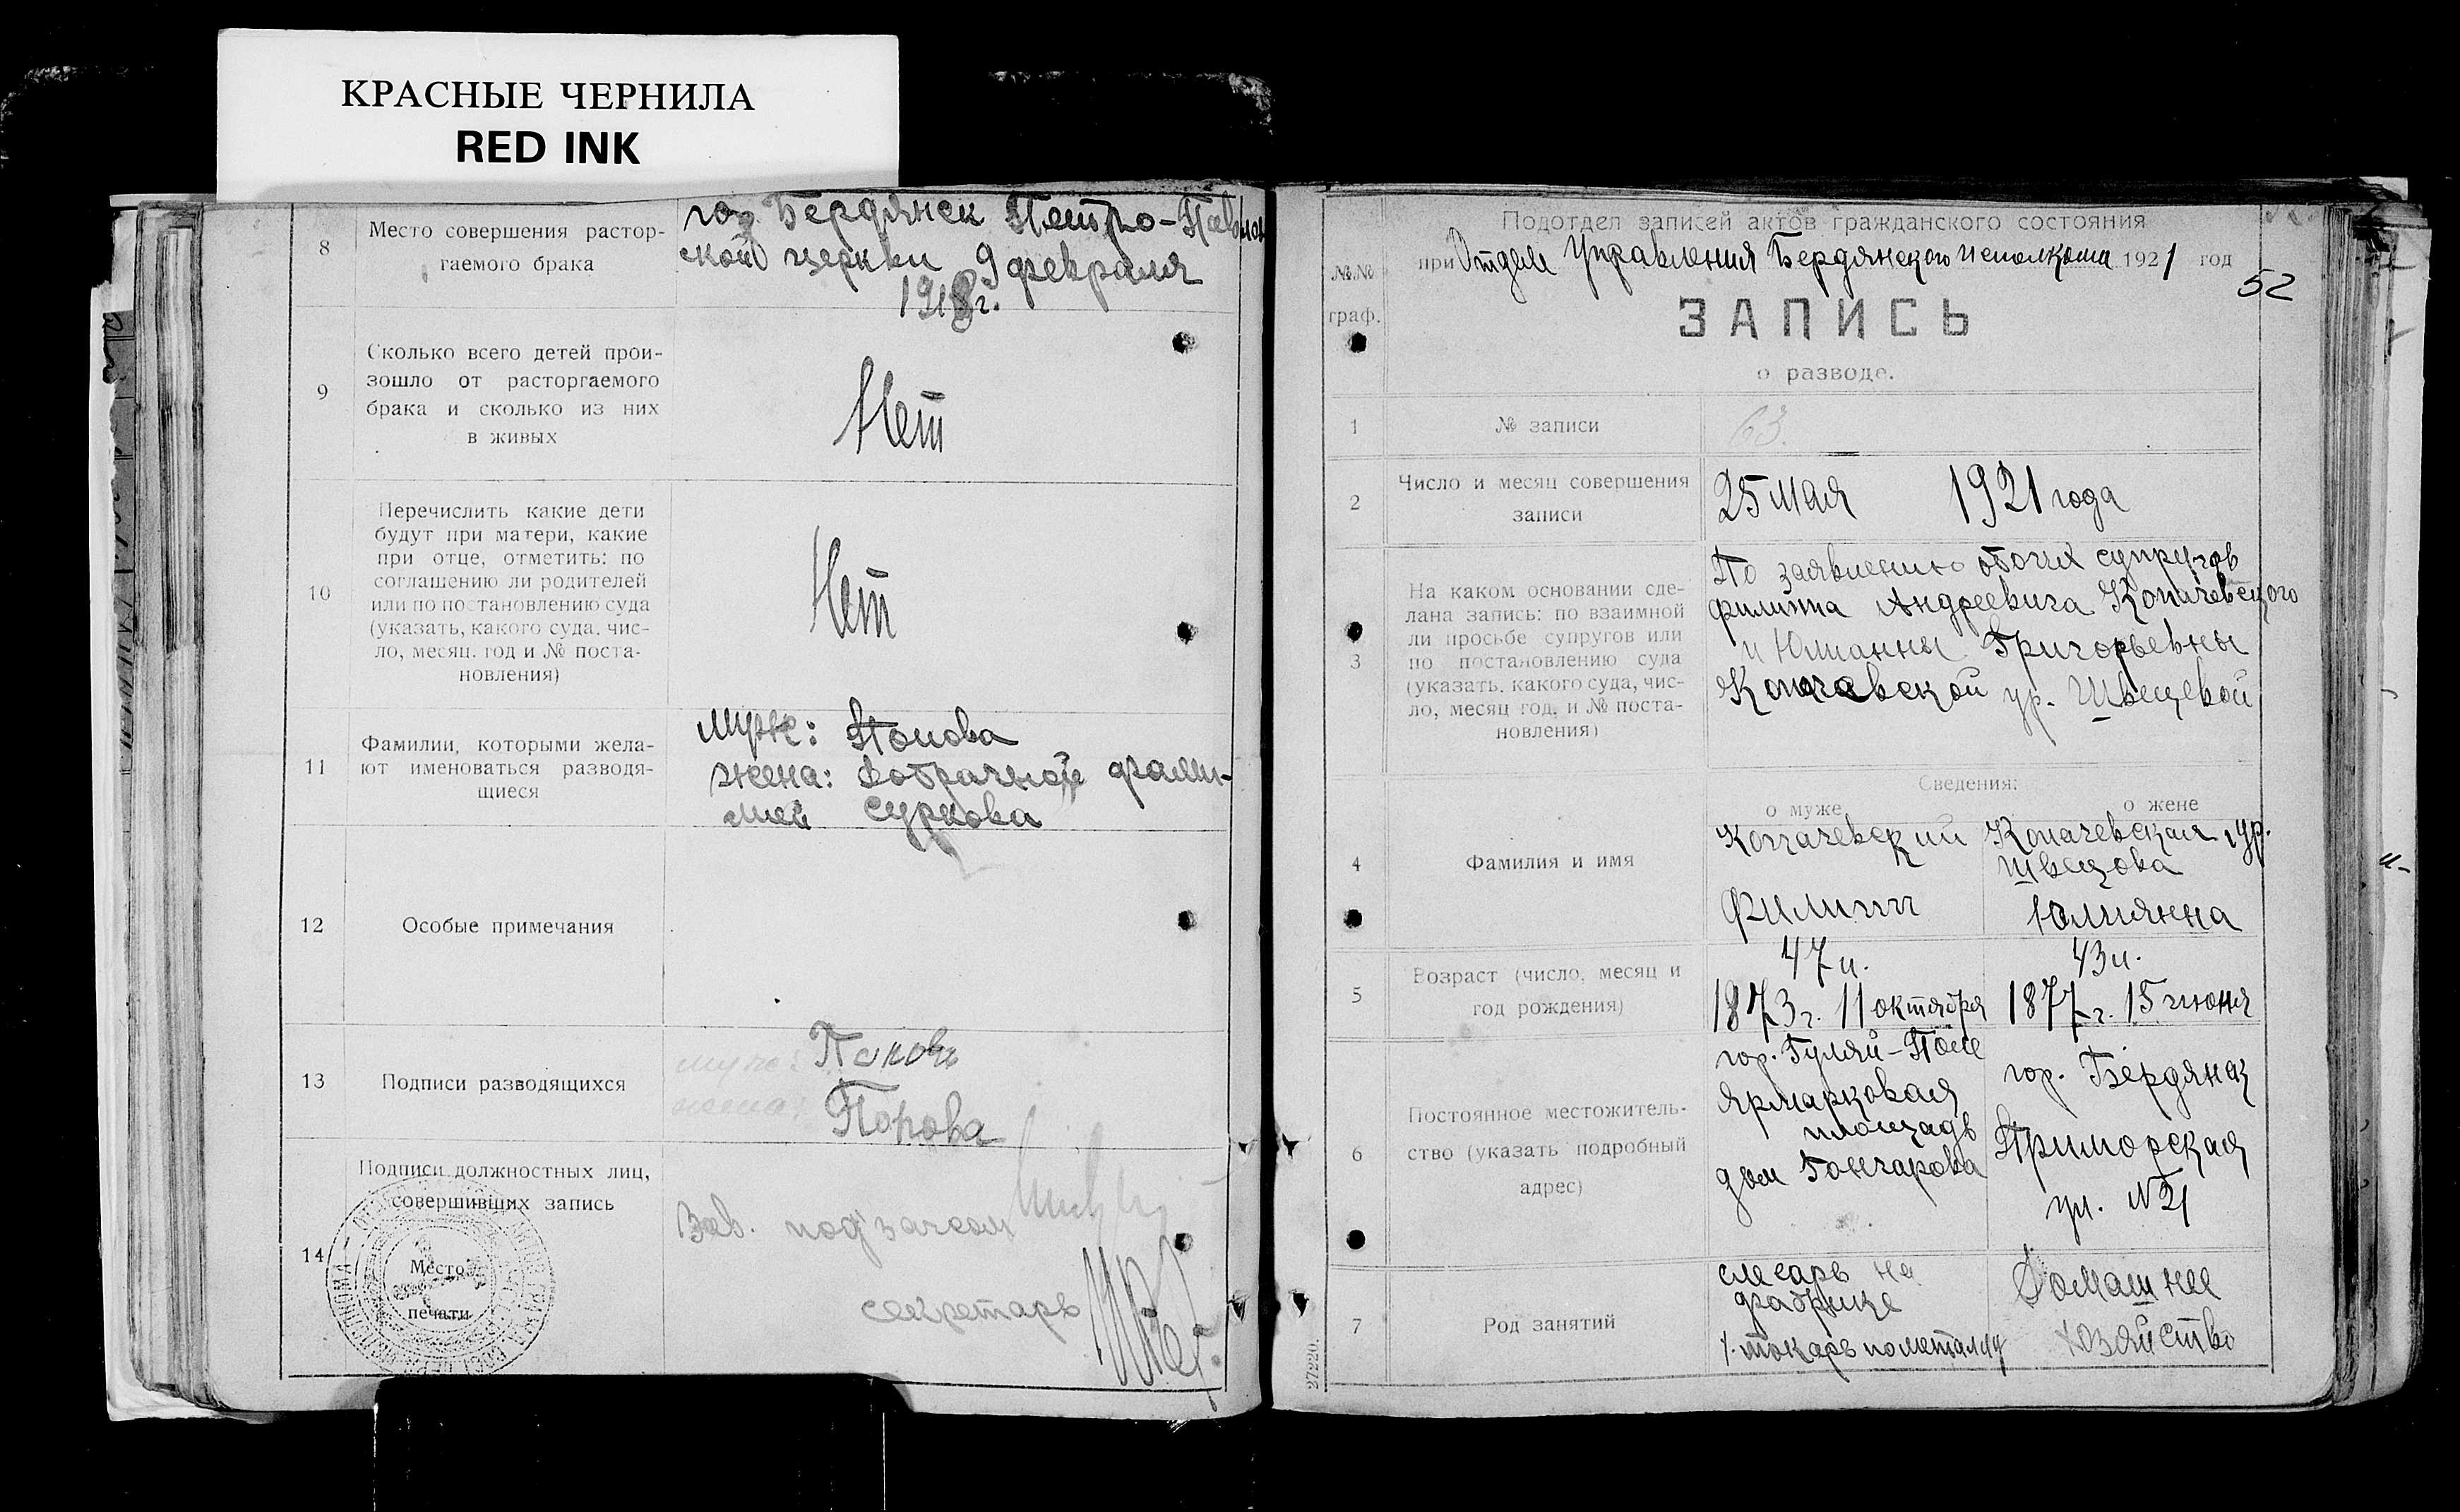 КРАСНЫЕ ЧЕРНИЛА
RED INK
8
Место совершения растор-
гаемого брака
гор. Бердянск Петро-Павлов
ской церкви 9 февраля
1918 г.
9
Сколько всего детей прои-
зошло от расторгаемого
брака и сколько из них
в живых
Нет
10
Перечислить какие дети
будут при матери, какие
при отце, отметить: по
соглашению ли родителей
или по постановлению суда
(указать, какого суда, чис-
ло, месяц, год и № поста-
новления)
Нет
11
Фамилии, которыми жела-
ют именоваться разводя-
щиеся
муж: Попова
жена: добрачной фами-
лией Суркова
12
Особые примечания
13
Подписи разводящихся
муж: Попов
жена: Попова
14
Подписи должностных лиц,
совершивших запись
Место
печати
Зав. под'загсом
секретарь
Подотдел записей актов гражданского состояния
при Отделе Управления Бердянского исполкома 1921 год
52
№№
граф.
ЗАПИСЬ
о разводе.
1
№ записи
63.
2
Число и месяц совершения
записи
25 мая 1921 года
3
На каком основании сде-
лана запись: по взаимной
ли просьбе супругов или
по постановлению суда
(указать, какого суда, чис-
ло, месяц год, и № поста-
новления)
По заявлению обоих супругов
Филиппа Андреевича Копачевского
и Юлианны Григорьевны
Копачевской ур. Швецевой
Сведения:
о муже
о жене
4
Фамилия и имя
Копачевский
Филипп
Копачевская, ур.
Швецова
Юлиянна
5
Возраст (число, месяц и
год рождения)
47 л.
1873 г. 11 октября
43 л.
1877 г. 15 июня
6
Постоянное местожитель-
ство (указать подробный
адрес)
гор. Гуляй-Поле
Ярмарковая
площадь
дом Гончарова
гор. Бердянск
Приморская
ул. №21
7
Род занятий
слесарь на
фабрике
токарь по металлу
Домашнее
хозяйство
27220.